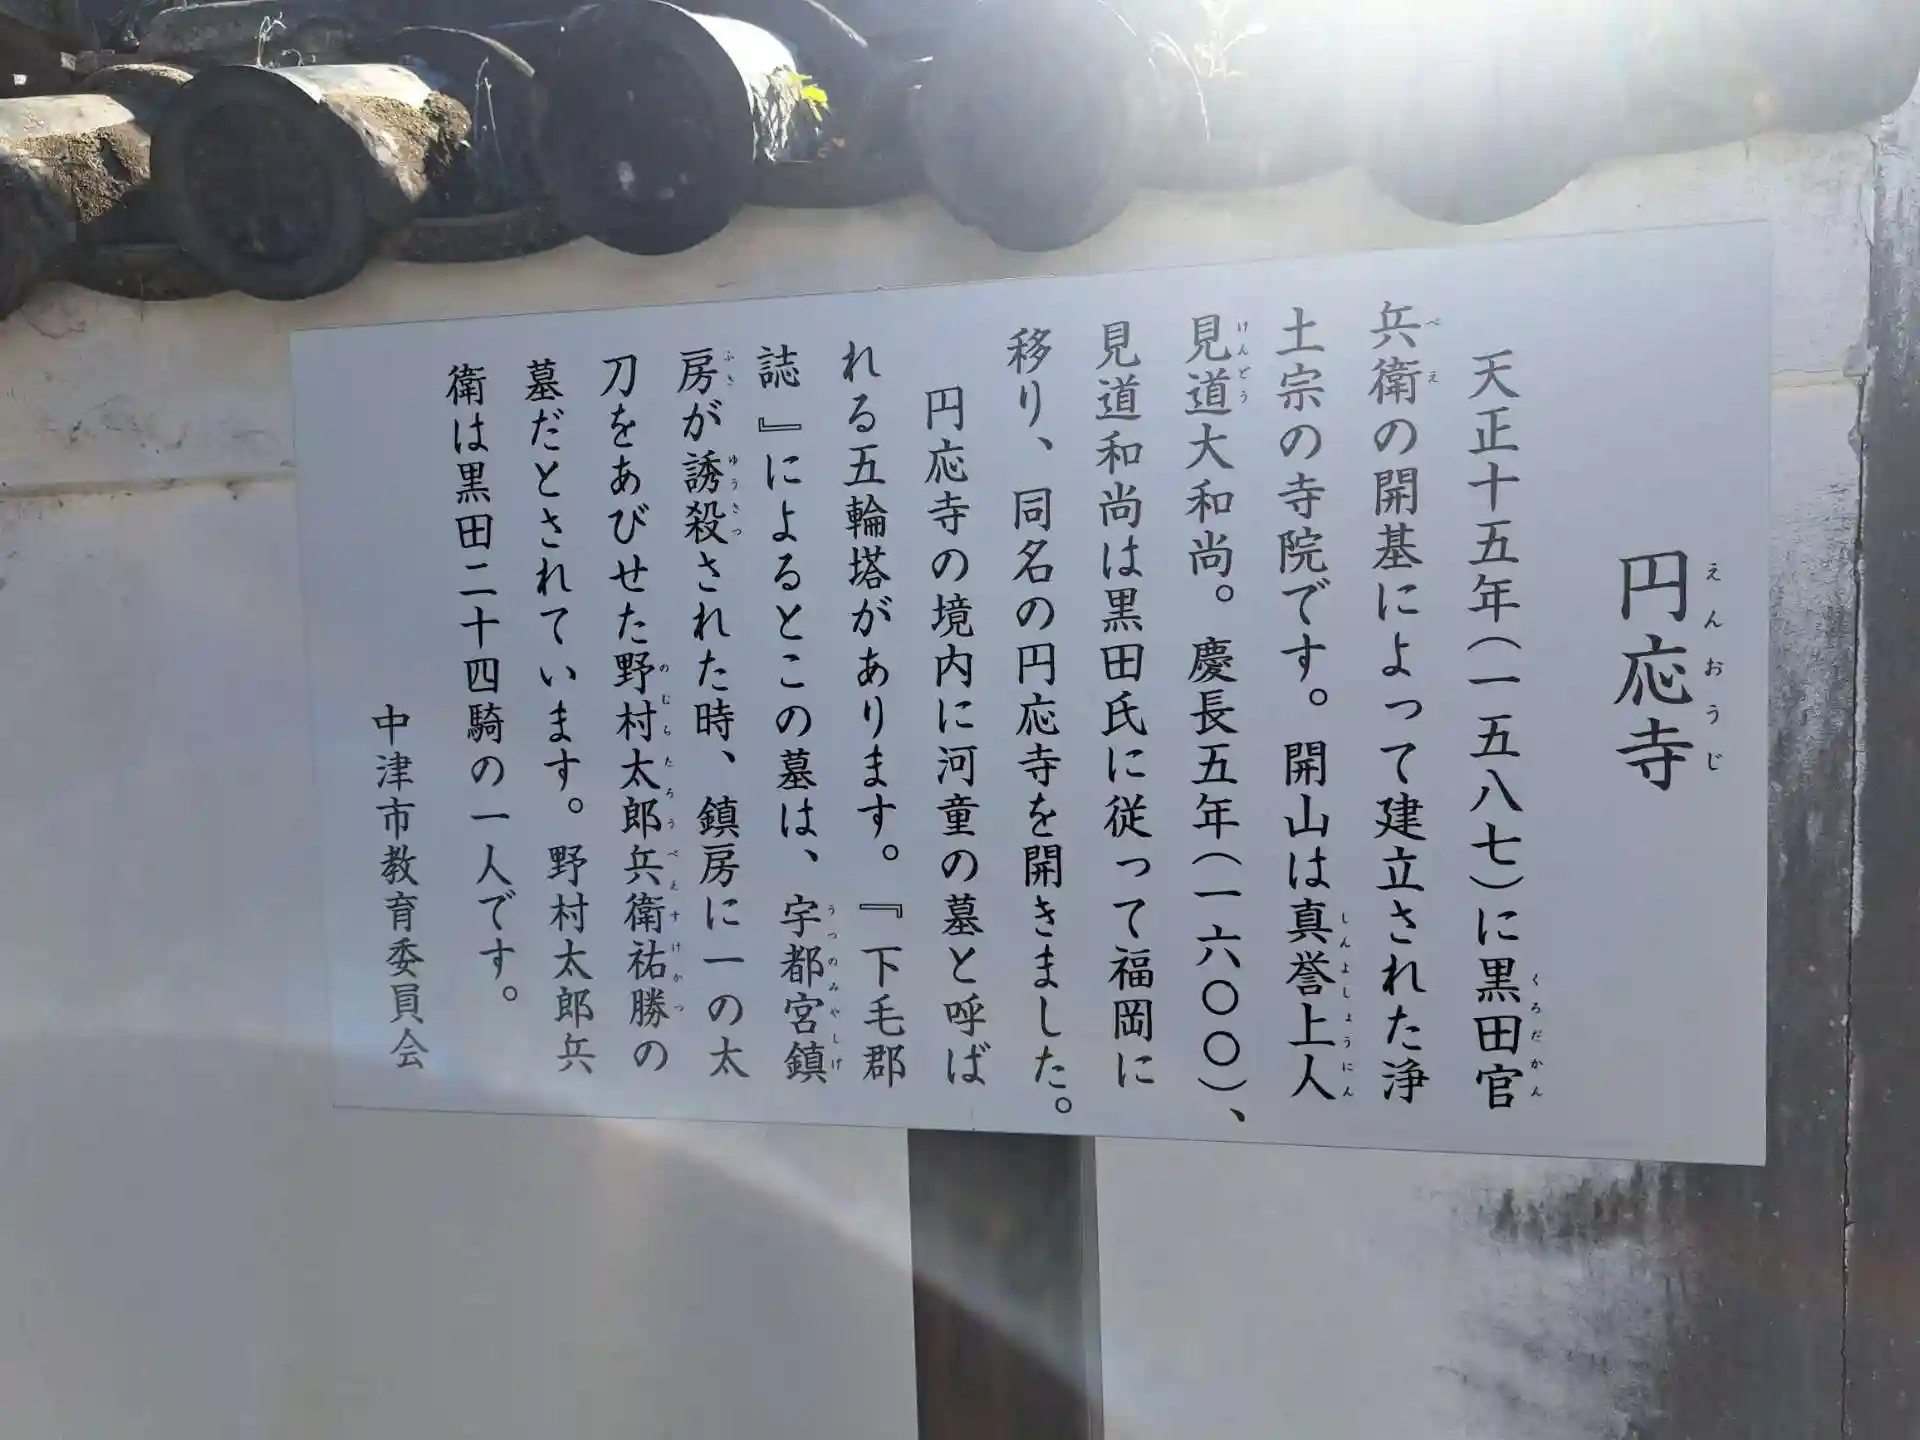 円応寺
えんおうじ
天正十五年(一五八七)に黒田官
くろだかん
兵衛の開基によって建立された浄
べえ
土宗の寺院です。開山は真誉上人
しんよしょうにん
見道大和尚。慶長五年(一六〇〇)、
けんどう
見道和尚は黒田氏に従って福岡に
移り、同名の円応寺を開きました。
円応寺の境内に河童の墓と呼ば
れる五輪塔があります。『下毛郡
誌』によるとこの墓は、宇都宮鎮
うつのみやしげ
房が誘殺された時、鎮房に一の太
ふさ ゆうさつ
刀をあびせた野村太郎兵衛祐勝の
のむらたろうべえすけかつ
墓だとされています。野村太郎兵
衛は黒田二十四騎の一人です。
中津市教育委員会